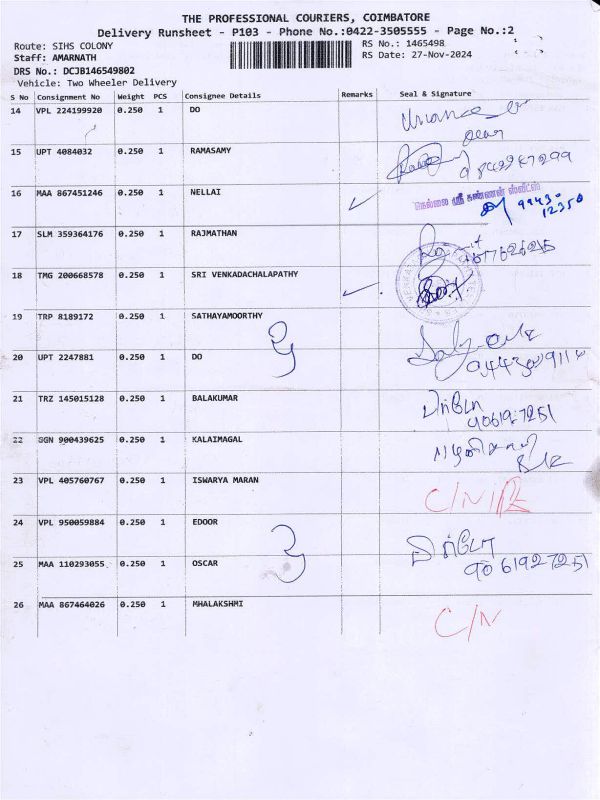 THE PROFESSIONAL COURIERS, COIMBATORE
Delivery Runsheet - P103 - Phone No.:0422-3505555 - Page No.:2
Route: SIHS COLONY RS No.: 1465498
Staff: AMARNATH RS Date: 27-Nov-2024
DRS No.: DCJB146549802
Vehicle: Two Wheeler Delivery
S No Consignment No Weight PCS Consignee Details Remarks Seal & Signature
14 VPL 224199920 0.250 1 DO
15 UPT 4084032 0.250 1 RAMASAMY
16 MAA 867451246 0.250 1 NELLAI
நெல்லை ஸ்ரீ கண்ணன் ஸ்வீட்ஸ்
99430
12350
17 SLM 359364176 0.250 1 RAJMATHAN
18 TMG 200668578 0.250 1 SRI VENKADACHALAPATHY
19 TRP 8189172 0.250 1 SATHAYAMOORTHY
20 UPT 2247881 0.250 1 DO
21 TRZ 145015128 0.250 1 BALAKUMAR
9061927251
22 SGN 900439625 0.250 1 KALAIMAGAL
23 VPL 405760767 0.250 1 ISWARYA MARAN
24 VPL 950059884 0.250 1 EDOOR
25 MAA 110293055 0.250 1 OSCAR
90 61927251
26 MAA 867464026 0.250 1 MHALAKSHMI
C/N